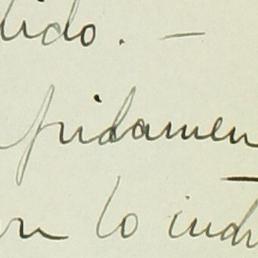 tido. —
pidamen
on lo indi